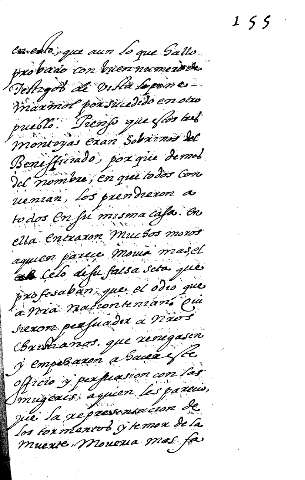 155
en esto, que aun lo que hallo
probado con buen numero de
testigos de vista lo pone
Marmol por sucedido en otro
pueblo. Pienso que estos tres
Montoyas eran sobrinos del
Benefficiado, por que demas
del nombre, en que todos con
venian, los prendieron a
todos en su misma casa. En
ella entraron muchos moros
a quien parece movia mas el
celo de su falsa seta que
profesaban, que el odio que
a n̄ra nacion tenian. Qui
sieron persuader a n̄ros
Christianos, que renegasen
y empeçaron a hacer este
officio y persuasion con las
mugeres, a quien les parecio,
que la representacion de
los tormentos y temor de la
muerte, moveria mas fa